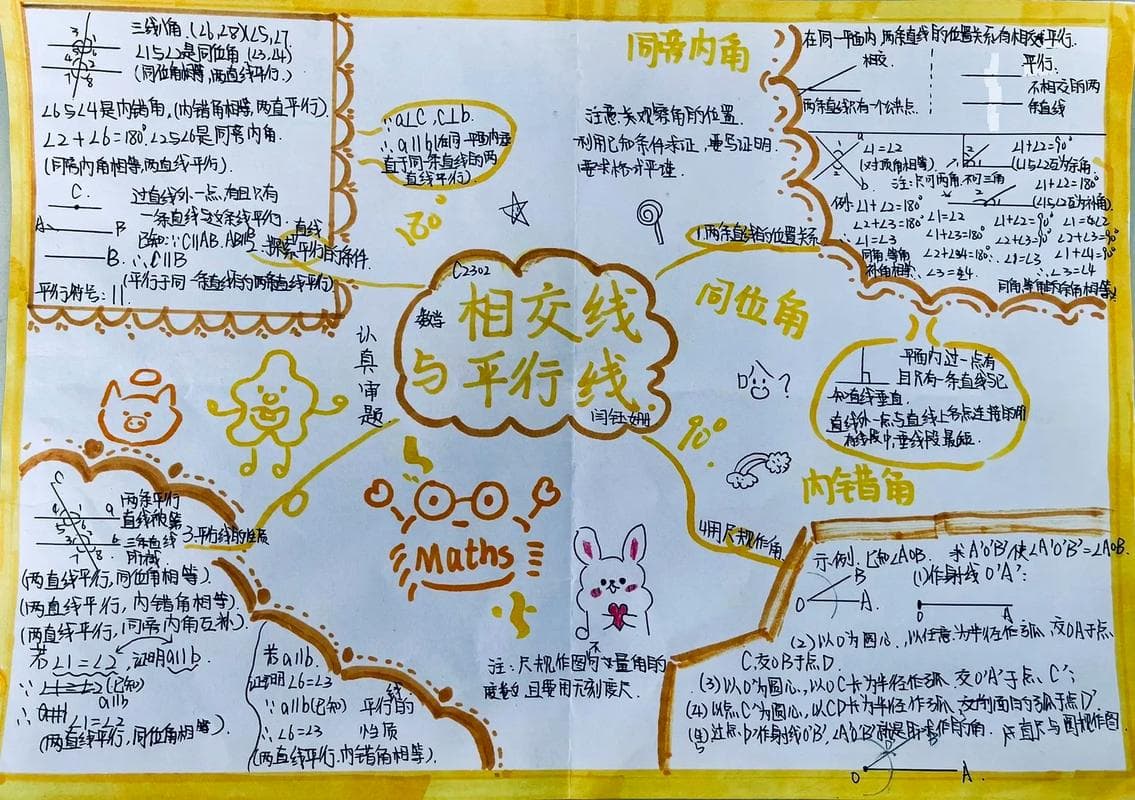 三线八角.(∠6,∠8)(∠5,∠7
∠1与∠2是同位角(∠3,∠4)
(同位角相等,两直线平行.)
∠6与∠4是内错角,(内错角相等,两直平行)
∠2+∠6=180°,∠2与∠6是同旁内角.
(同旁内角相等,两直线平行)
C.
过直线外一点,有且只有
一条直线与这条线平行.
直线
A
B
B.
已知:∵C∥AB.
∴C∥B
2.探索平行的条件.
(平行于同一条直线的两条直线平行)
平行符号:∥
∵a⊥c,c⊥b.
∴a∥b(在同一平面内垂
直于同一条直线的两
直线平行)
180°
同旁内角
注意:关观察角的位置.
利用已知条件求证,要写证明
要求格式严谨.
在同一平面内,两条直线的位置关系有相交和平行.
相交
平行.
不相交的两
条直线
两条直线只有一个公共点.
a
b
∠1=∠2
(对顶角相等)
∠1+∠2=90°
(∠1与∠2互为余角
注:只可两角,不可三角
∠1+∠2=180°
(∠1与∠2互为补角)
例:∠1+∠2=180°
∠2+∠3=180°
∴∠1=∠3
同角,等角
补角相等.
∠1=∠2
∠1+∠3=180°
∠2+∠4=180°
∴∠3=∠4.
∠1+∠2=90°
∠2+∠3=90°
∴∠1=∠3
∠1=∠2
∠2+∠3=90°
∠1+∠4=90°
∴∠3=∠4
同角等角的余角相等
1.两条直线的位置关系
C2302
数学
相交线
与平行线
闫钰姗
认真审题
同位角
平面内过一点有
且只有一条直线与已
知直线垂直.
直线外一点与直线上各点连接的所
有线段中,垂线段最短.
?
90°
内错角
c
a
b
两条平行
直线被第
三条直线
所截
3.平行线的性质
(两直线平行,同位角相等)
(两直线平行,内错角相等)
(两直线平行,同旁内角互补)
若∠1=∠2,证明a∥b.
∵ (已知)
a∥b
∴ ∠1=∠2
(两直线平行,同位角相等)
若a∥b.
证明∠6=∠3
∵a∥b(已知)
∴∠6=∠3
(两直线平行.内错角相等).
平行线的
性质
Maths
注:尺规作图不可量角的
度数,且要用无刻度尺.
4.用尺规作角
示例.已知∠AOB. 求A'O'B'使∠A'O'B'=∠AOB.
B
O
A.
(1)作射线O'A':
A
(2)以O为圆心,以任意为半径作弧,交OA于点
C.交OB于点D.
(3)以O'为圆心,以OC长为半径作弧.交O'A'于点、C';
(4)以点C'为圆心,以CD长为半径作弧.交前面的弧于点D'
(5)过点.D'作射线O'B',∠A'O'B'就是所求作的角.
O
A.